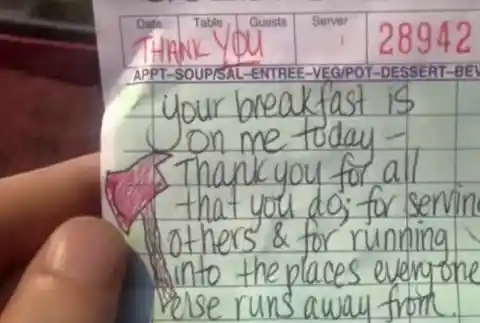 Date Table Guests Server
THANK YOU 28942
APPT-SOUP/SAL-ENTREE-VEG/POT-DESSERT-BEV
your breakfast is
on me today -
Thank you for all
that you do; for serving
others & for running
into the places everyone
else runs away from.